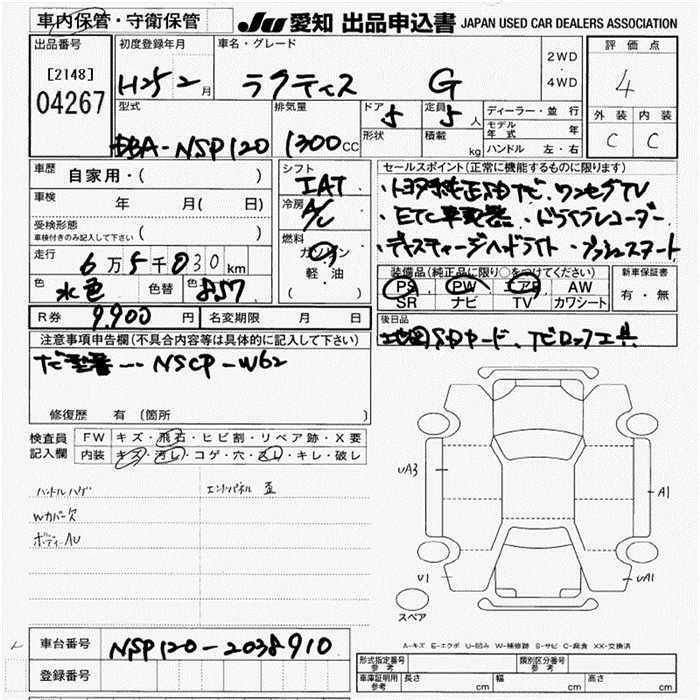 車内保管・守衛保管
JU 愛知 出品申込書 JAPAN USED CAR DEALERS ASSOCIATION
出品番号 初度登録年月 車名・グレード 2WD ・ 4WD 評価点
[2148] 04267 H25 2月 ラクティス G 4
型式 排気量 ドア 5 定員 5人 ディーラー・並行 外装 内装
DBA-NSP120 1300cc 形状 積載 kg モデル年式 年 C C
ハンドル 左・右
車歴 自家用・( ) シフト IAT セールスポイント(正常に機能するものに限ります)
車検 年 月(日) 冷房 A/C ・トヨタ純正SDナビ・ワンセグTV
受検形態 車検付きのみ記入して下さい ( ) ・ETC車載器・ドライブレコーダー
走行 6万5千030km 燃料 ガソリン ・ディスチャージヘッドライト・プッシュスタート
軽・油 ( )
色 水色 色替 857 装備品(純正品に限り○をつけてください) 新車保証書
PS PW エアB AW 有・無
SR ナビ TV カワシート
R券 9.900円 名変期限 月 日 後日品
地図SDカード、ナビロック工具
注意事項申告欄(不具合内容等は具体的に記入して下さい)
ナビ型番…NSCP-W62
修復歴 有 (箇所 )
検査員記入欄 FW キズ・飛石・ヒビ割・リペア跡・X要
内装 キズ・汚レ・コゲ・穴・スレ・キレ・破レ
ハンドルハゲ エンドパネル 歪
Wカバー欠
ボディーAU
UA3 A1
U1 UA1
スペア
A-キズ E-エクボ U-凹み W-補修跡 S-サビ C-腐食 XX-交換済
車台番号 NSP120-2038910
登録番号
形式指定番号 参考 類別区分番号 参考
車庫証明用 参考 長さ cm 幅 cm 高さ cm